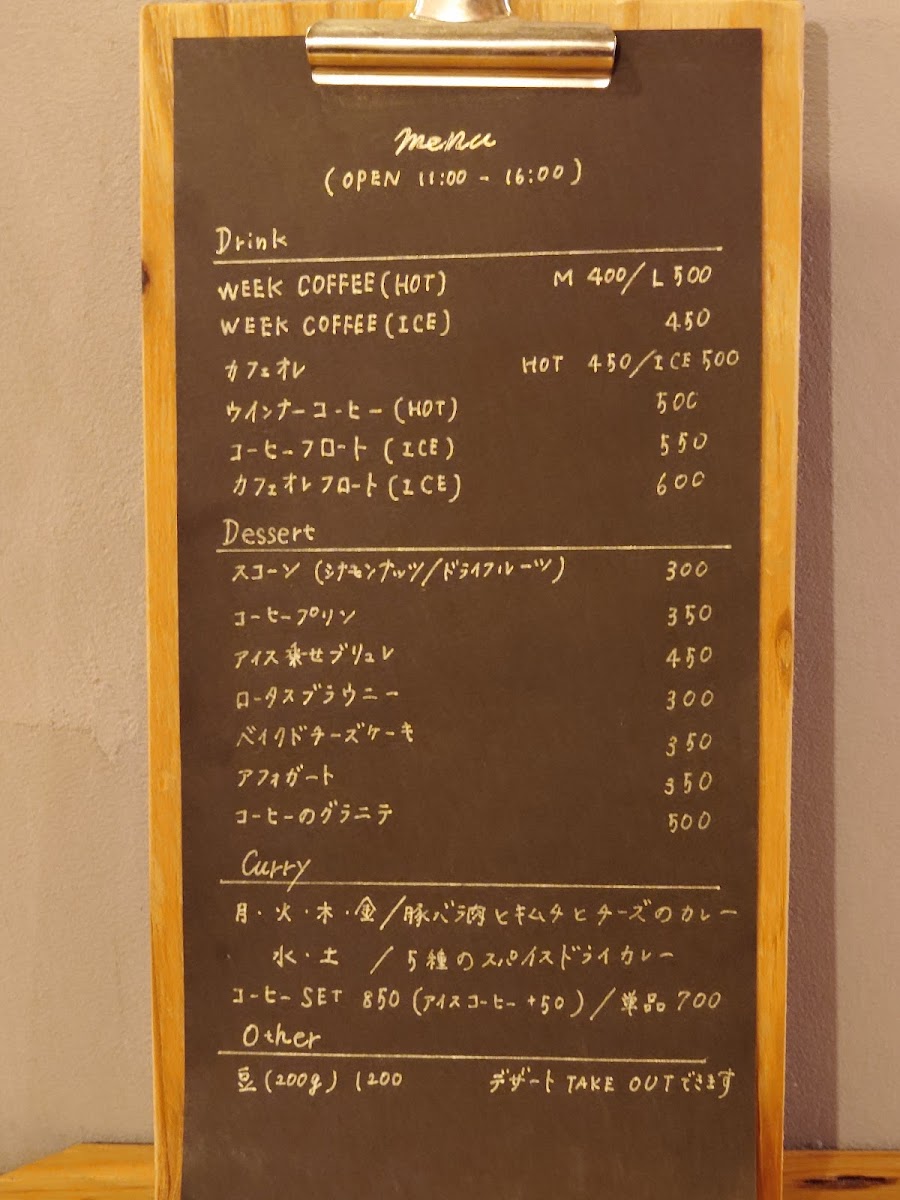 menu
(OPEN 11:00 - 16:00)
Drink
WEEK COFFEE(HOT) M 400/L 500
WEEK COFFEE(ICE) 450
カフェオレ HOT 450/ICE 500
ウインナーコーヒー(HOT) 500
コーヒーフロート(ICE) 550
カフェオレフロート(ICE) 600
Dessert
スコーン(シナモンナッツ/ドライフルーツ) 300
コーヒープリン 350
アイス乗せブリュレ 450
ロータスブラウニー 300
ベイクドチーズケーキ 350
アフォガート 350
コーヒーのグラニテ 500
Curry
月・火・木・金/豚バラ肉とキムチとチーズのカレー
水・土 /5種のスパイスドライカレー
コーヒーSET 850(アイスコーヒー+50)/単品700
Other
豆(200g) 1200 デザートTAKE OUTできます